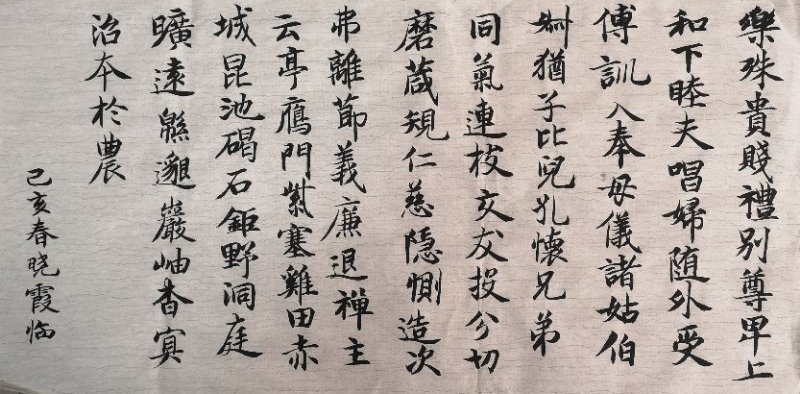 樂殊貴賤禮別尊卑上
和下睦夫唱婦随外受
傅訓入奉母儀諸姑伯
叔猶子比兒孔懷兄弟
同氣連枝交友投分切
磨箴規仁慈隐惻造次
弗離節義廉退禅主
云亭鴈門紫塞雞田赤
城昆池碣石鉅野洞庭
曠遠緜邈巖岫杳冥
治本於農
己亥春晓霞临